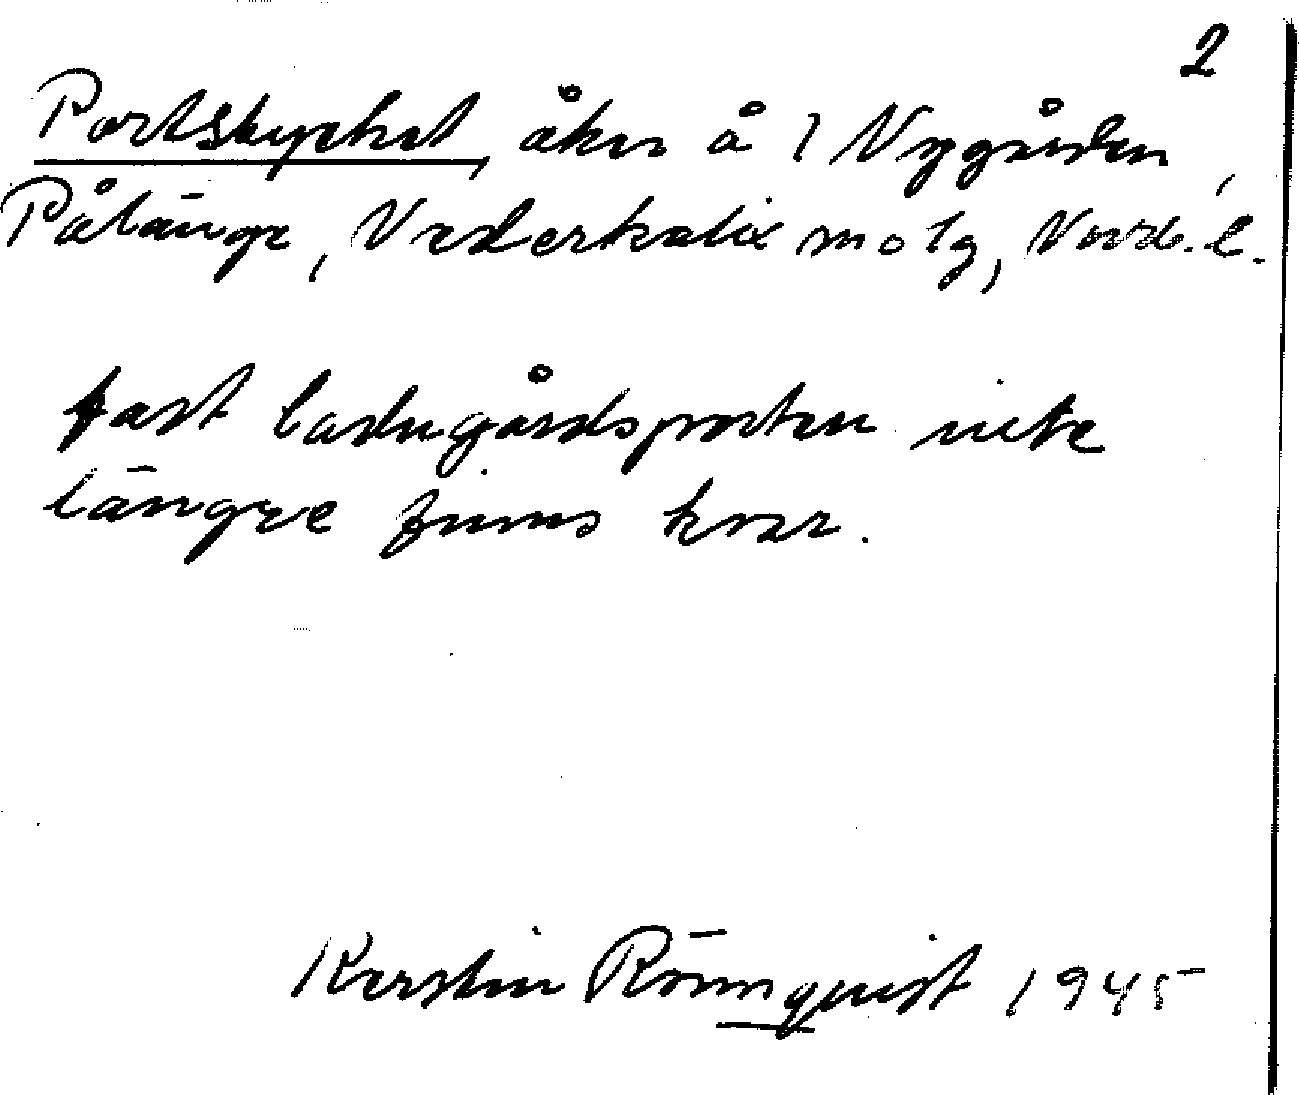 2
Portstycket, åker å 1 Nygården,
Pålänge, Nederkalix sn o tg, Nordb. l.
fast ladugårdsporten inte
längre finns kvar.
Kerstin Rönnquist 1945